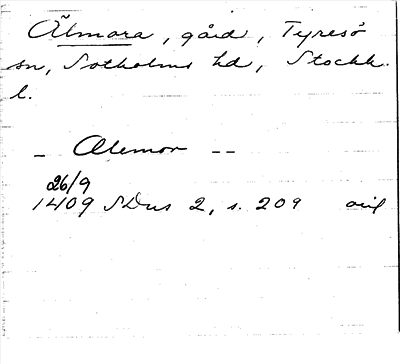 Älmora, gård, Tyresö
sn, Sotholms hd, Stockh.
l.
– Alemor --
26/9
1409 SDns 2, s. 209 orig